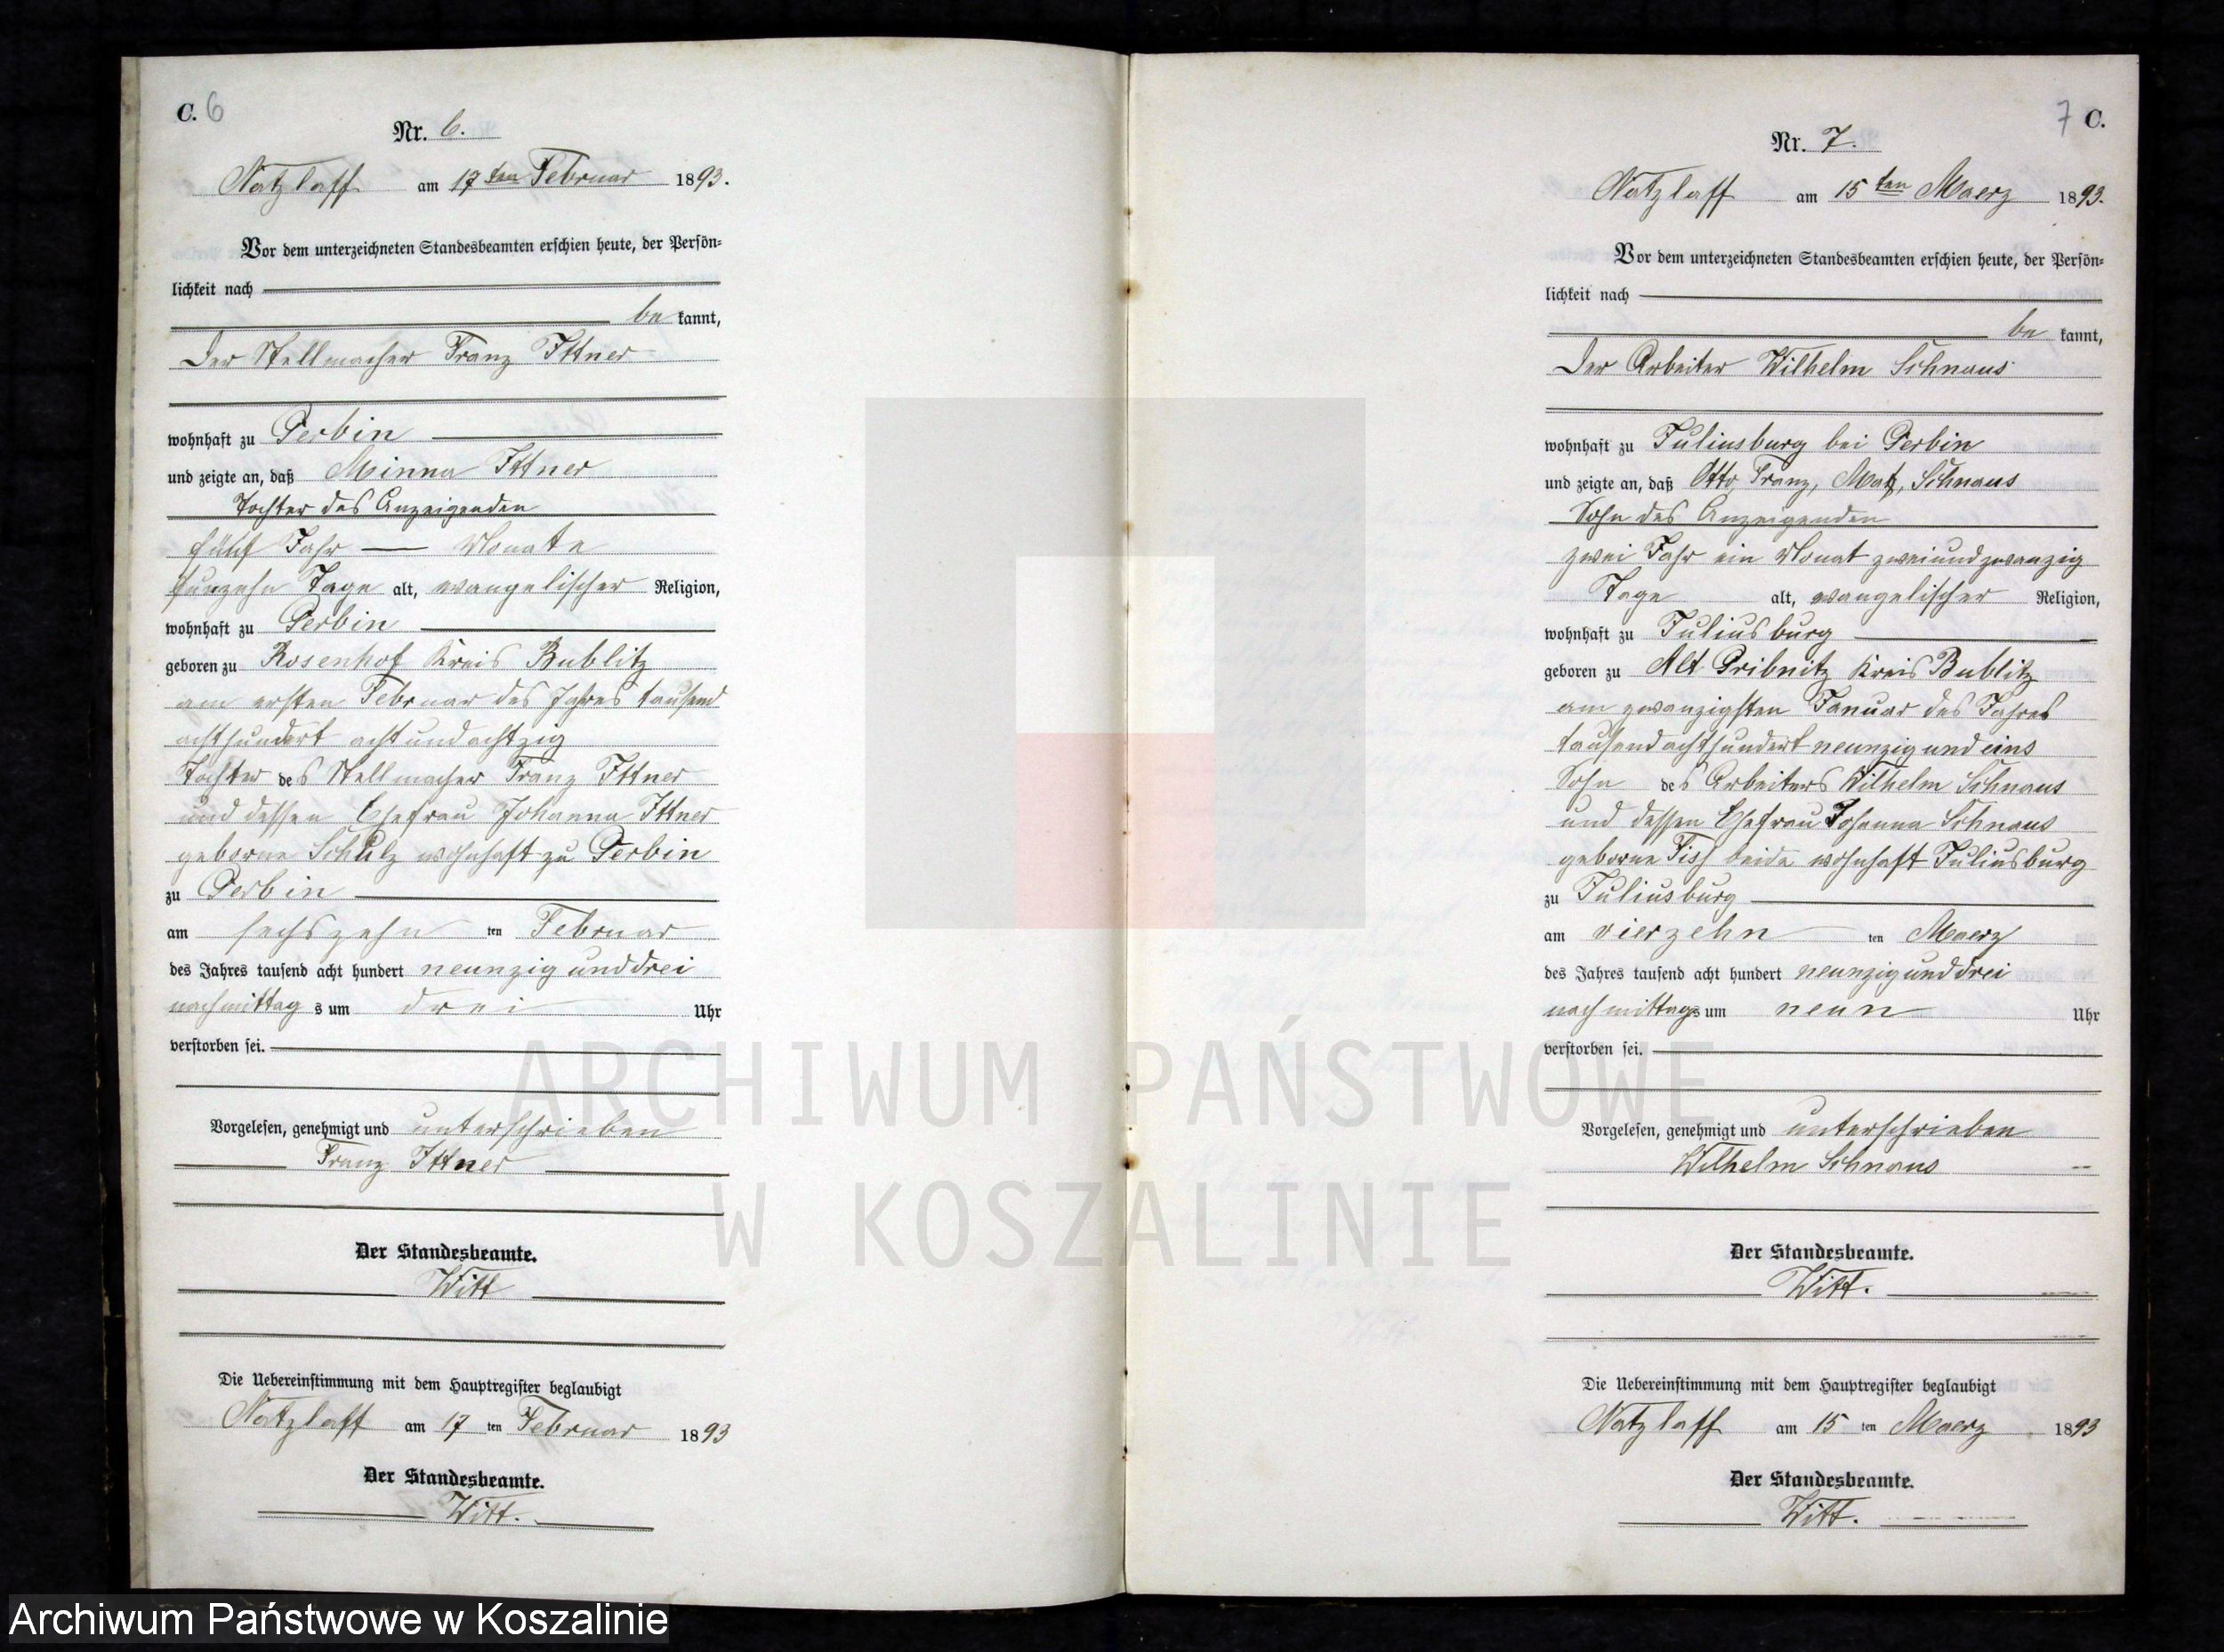 C. 6
Nr. 6.
Natzlaff am 17ten Februar 1893.
Vor dem unterzeichneten Standesbeamten erschien heute, der Persön-
lichkeit nach
be kannt,
der Stellmacher Franz Ittner
wohnhaft zu Perbin
und zeigte an, daß Minna Ittner
Tochter des Anzeigenden
fünf Jahr — Monate
funzehn Tage alt, evangelischer Religion,
wohnhaft zu Perbin
geboren zu Rosenhof Kreis Bublitz
am ersten Februar des Jahres tausend
achthundert achtundachtzig
Tochter des Stellmacher Franz Ittner
und dessen Ehefrau Johanna Ittner
geborne Schulz wohnhaft zu Perbin
zu Perbin
am sechszehn ten Februar
des Jahres tausend acht hundert neunzig und drei
nachmittag s um drei Uhr
verstorben sei.
Vorgelesen, genehmigt und unterschrieben
Franz Ittner
Der Standesbeamte.
Witt
Die Uebereinstimmung mit dem Hauptregister beglaubigt
Natzlaff am 17 ten Februar 1893
Der Standesbeamte.
Witt.
7 C.
Nr. 7.
Natzlaff am 15ten Maerz 1893.
Vor dem unterzeichneten Standesbeamten erschien heute, der Persön-
lichkeit nach
be kannt,
der Arbeiter Wilhelm Schnaus
wohnhaft zu Juliusburg bei Perbin
und zeigte an, daß Otto, Franz, Schnaus
Sohn des Anzeigenden
zwei Jahr ein Monat zweiundzwanzig
Tage alt, evangelischer Religion,
wohnhaft zu Juliusburg
geboren zu Alt Pribnitz Kreis Bublitz
am zwanzigsten Januar des Jahres
tausend achthundert neunzig und eins
Sohn des Arbeiters Wilhelm Schnaus
und dessen Ehefrau Johanna Schnaus
geborne beide wohnhaft Juliusburg
zu Juliusburg
am vierzehn ten Maerz
des Jahres tausend acht hundert neunzig und drei
nachmittags um neun Uhr
verstorben sei.
Vorgelesen, genehmigt und unterschrieben
Wilhelm Schnaus
Der Standesbeamte.
Witt.
Die Uebereinstimmung mit dem Hauptregister beglaubigt
Natzlaff am 15 ten Maerz 1893
Der Standesbeamte.
Witt.
ARCHIWUM PAŃSTWOWE
W KOSZALINIE
Archiwum Państwowe w Koszalinie